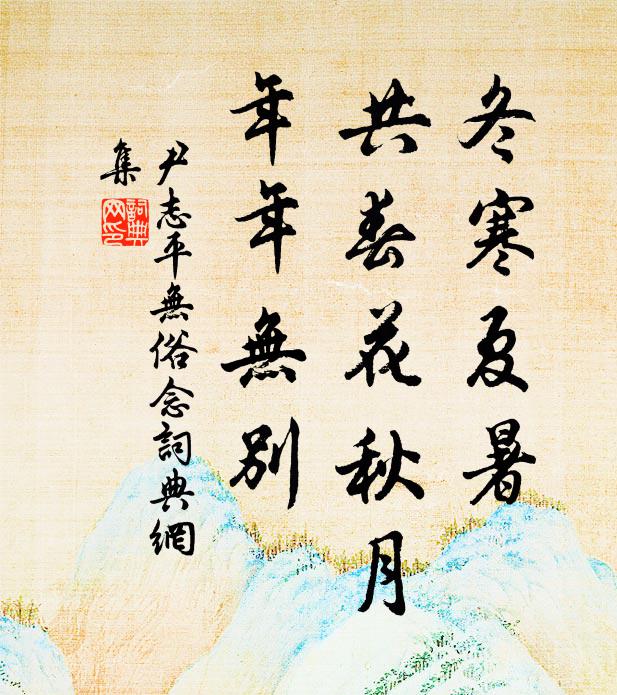 冬寒夏暑
共春花秋月
年年無別
尹志平無俗念詞典網
集
詞典網印